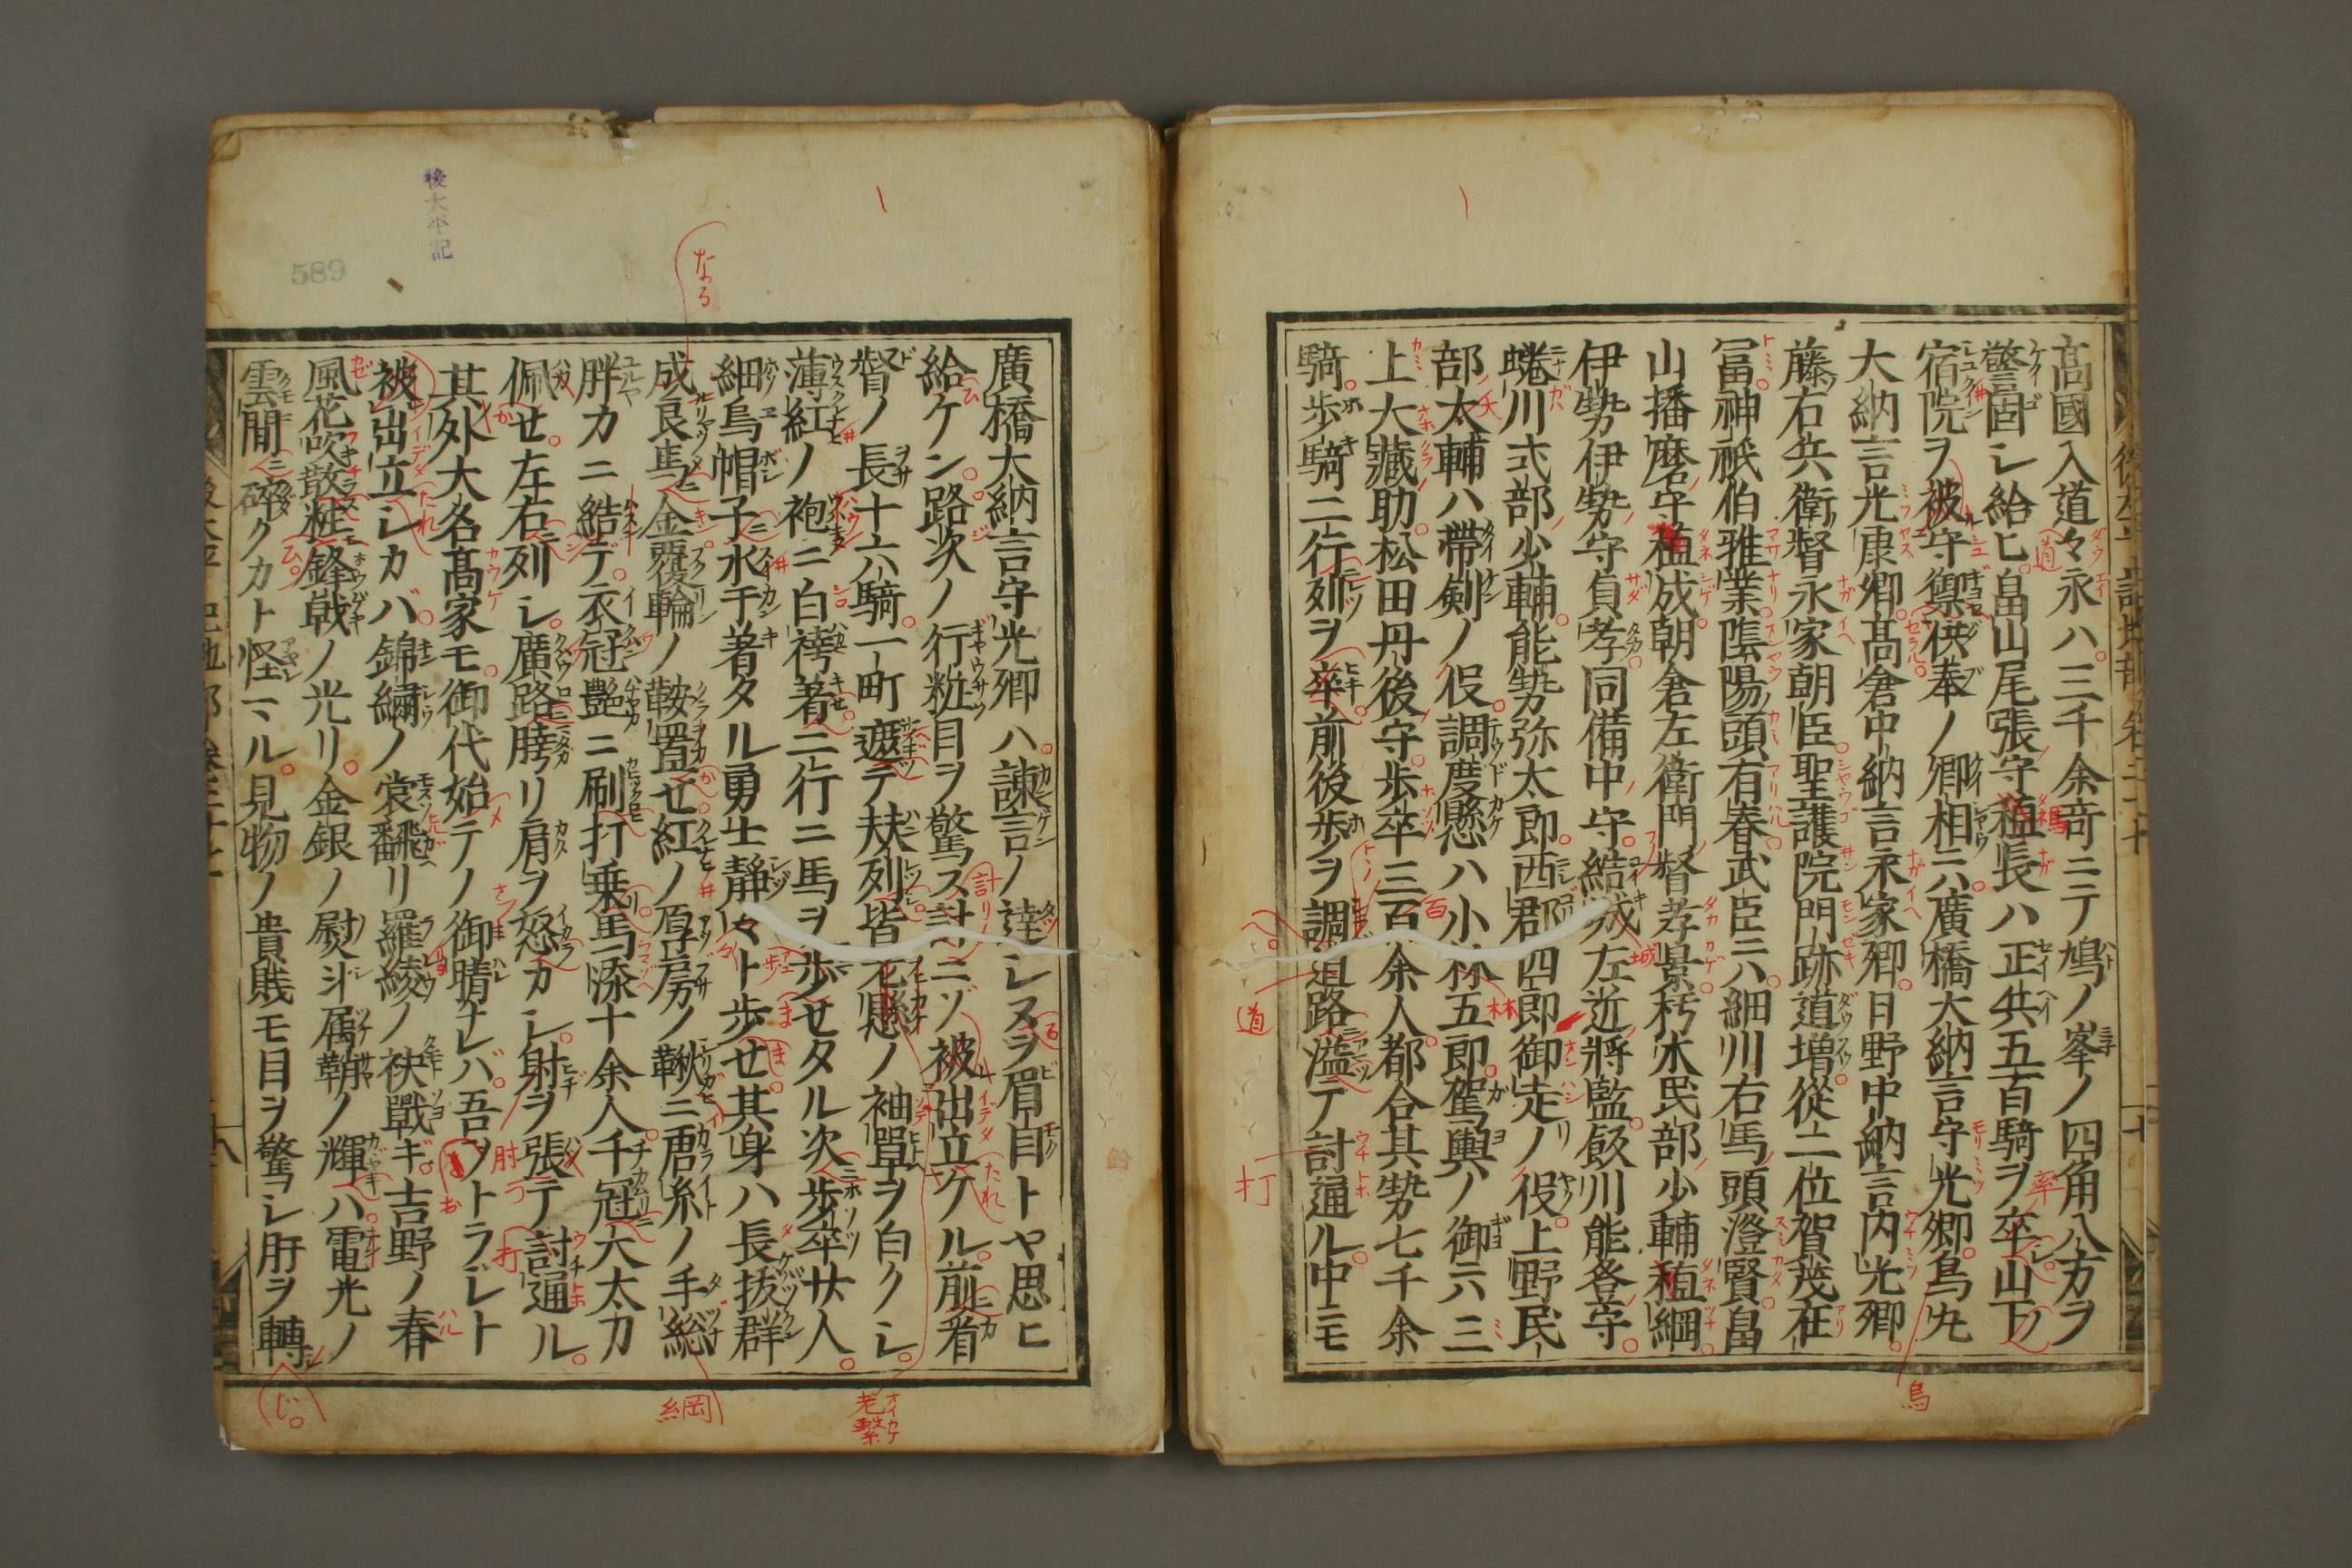 高國入道々永ハ三千余竒ニテ鳩ノ峯ノ四角八方ヲ
警固シ給ヒ畠山尾張守稙長ハ正兵五百騎ヲ卒山下ノ
宿院ヲ被守禦供奉ノ卿相ニハ廣橋大納言守光卿烏丸
大納言光康卿高倉中納言永家卿日野中納言内光卿
藤右兵衛督永家朝臣聖護院門跡道増從二位賀茂在
冨神祇伯雅業陰陽頭有春武臣ニハ細川右馬頭澄賢畠
山播磨守稙成朝倉左衛門督孝景朽木民部少輔稙綱
伊勢伊勢守貞孝同備中守結城左近將監飯川能登守
蜷川式部少輔能勢弥太郎西郡四郎御走ノ役上野民
部太輔ハ帶剣ノ役調度懸ハ小林五郎駕輿ノ御六三
上大藏助松田丹後守歩卒三百余人都合其勢七千余
騎歩騎二行列ヲ卒前後歩ヲ調道路濫テ討通ル中ニモ
廣橋大納言守光卿ハ諫言ノ達シヌヲ眉目トヤ思ヒ
給ケン路次ノ行粧目ヲ驚ス計ニゾ被出立ケル前看
督ノ長十六騎一町遮テ夫列皆老懸ノ袖單ヲ白クシ
薄紅ノ袍ニ白袴著二行ニ馬ヲ歩セタル次歩卒廿人
細烏帽子水干著タル勇士靜々ト歩せ其身ハ長抜群
成良馬金覆輪ノ鞍置せ紅ノ厚房ノ鞦ニ唐糸ノ手総
胖カニ結デ衣冠艶ニ刷打乗馬添十余人千冠大太刀
佩せ左右列シ廣路膀リ肩ヲ怒カシ射ヲ張テ討通ル
其外大名髙家モ御代始テノ御晴ナレバ吾ヲトラジト
被出立シカバ錦繍ノ裳翻リ羅綾ノ袂戰ギ吉野ノ春
風花吹散粧鋒戟ノ光リ金銀ノ熨斗属鞘ノ輝ハ電光ノ
雲間ニ碎クカト怪マル見物ノ貴賎モ目ヲ驚シ肝ヲ轉
後太平記
589
なる
老繫
綱
烏
道
打